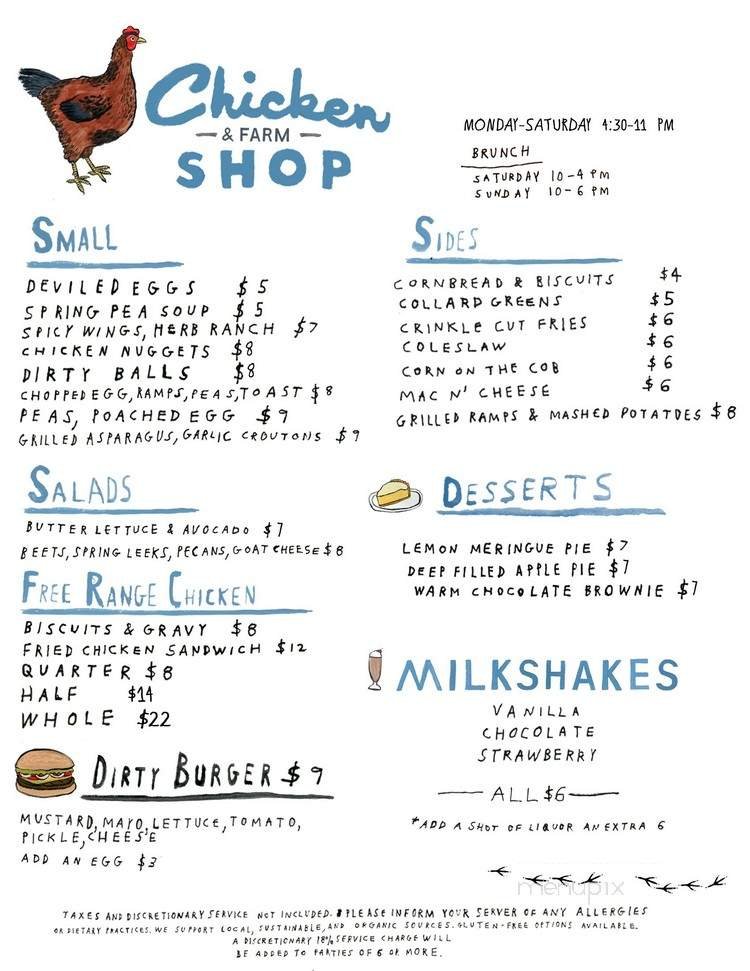 Chicken
& FARM
SHOP
MONDAY-SATURDAY 4:30-11 PM
BRUNCH
SATURDAY 10-4 PM
SUNDAY 10-6 PM
SMALL
DEVILED EGGS $5
SPRING PEA SOUP $5
SPICY WINGS, HERB RANCH $7
CHICKEN NUGGETS $8
DIRTY BALLS $8
CHOPPED EGG, RAMPS, PEAS, TOAST $8
PEAS, POACHED EGG $9
GRILLED ASPARAGUS, GARLIC CROUTONS $9
SIDES
CORNBREAD & BISCUITS $4
COLLARD GREENS $5
CRINKLE CUT FRIES $6
COLESLAW $6
CORN ON THE COB $6
MAC N' CHEESE $6
GRILLED RAMPS & MASHED POTATOES $8
SALADS
BUTTER LETTUCE & AVOCADO $7
BEETS, SPRING LEEKS, PECANS, GOAT CHEESE $8
FREE RANGE CHICKEN
BISCUITS & GRAVY $8
FRIED CHICKEN SANDWICH $12
QUARTER $8
HALF $14
WHOLE $22
DIRTY BURGER $9
MUSTARD, MAYO, LETTUCE, TOMATO,
PICKLE, CHEESE
ADD AN EGG $3
DESSERTS
LEMON MERINGUE PIE $7
DEEP FILLED APPLE PIE $7
WARM CHOCOLATE BROWNIE $7
MILKSHAKES
VANILLA
CHOCOLATE
STRAWBERRY
ALL $6
*ADD A SHOT OF LIQUOR AN EXTRA 6
menupix
TAXES AND DISCRETIONARY SERVICE NOT INCLUDED. PLEASE INFORM YOUR SERVER OF ANY ALLERGIES
OR DIETARY PRACTICES. WE SUPPORT LOCAL, SUSTAINABLE, AND ORGANIC SOURCES. GLUTEN-FREE OPTIONS AVAILABLE.
A DISCRETIONARY 18% SERVICE CHARGE WILL
BE ADDED TO PARTIES OF 6 OR MORE.